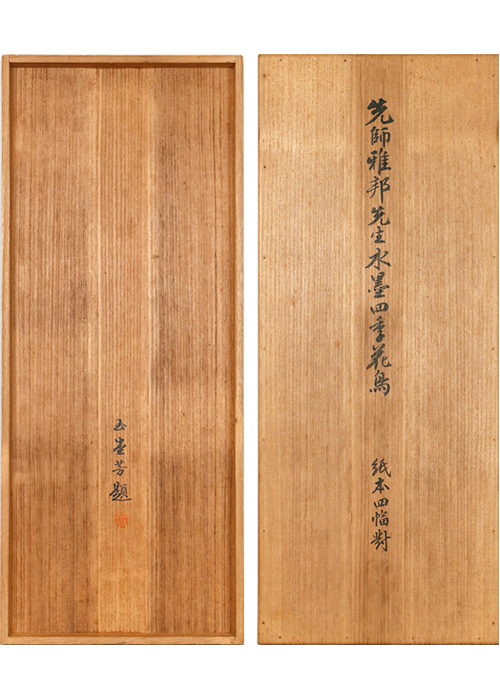 先師雅邦先生水墨四季花鳥
紙本四幅對
玉堂芳題